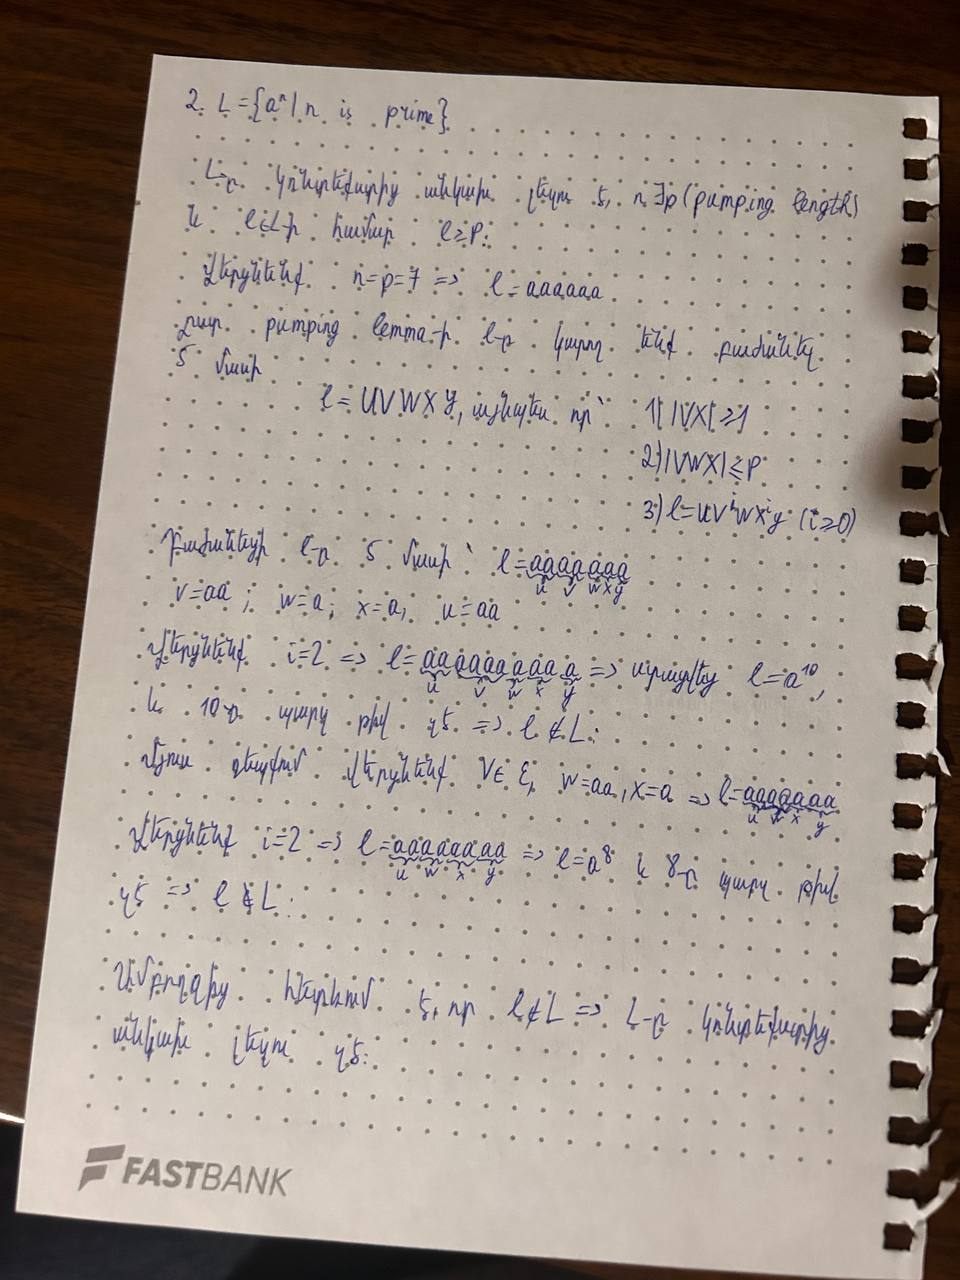 2. L = {aⁿ | n is prime}
L-ը կոնտեքստից անկախ լեզու է, ∃p (pumping length)
և l∈L-ի համար l≥p:
Վերցնենք n=p=7 => l=aaaaaa
ըստ pumping lemma-ի l-ը կարող ենք բաժանել
5 մասի
l = UVWXY, այնպես որ՝ 1) |VX|≥1
2) |VWX|≤P
3) l=UVⁱWXⁱy (i≥0)
Բաժանենք l-ը 5 մասի՝ l=aaaaaaa
u v w x y
v=aa; w=a; x=a, u=aa
Վերցնենք i=2 => l=aaaaaaaaaa => ստացվեց l=a¹⁰,
u v w x y
և 10-ը պարզ թիվ չէ => l∉L:
Մյուս դեպքում վերցնենք V∈ε, w=aa, x=a => l=aaaaaaa
u w x y
Վերցնենք i=2 => l=aaaaaaaa => l=a⁸ և 8-ը պարզ թիվ
u w x y
չէ => l∉L:
Ամբողջից հետևում է, որ l∉L => L-ը կոնտեքստից
անկախ լեզու չէ:
FASTBANK